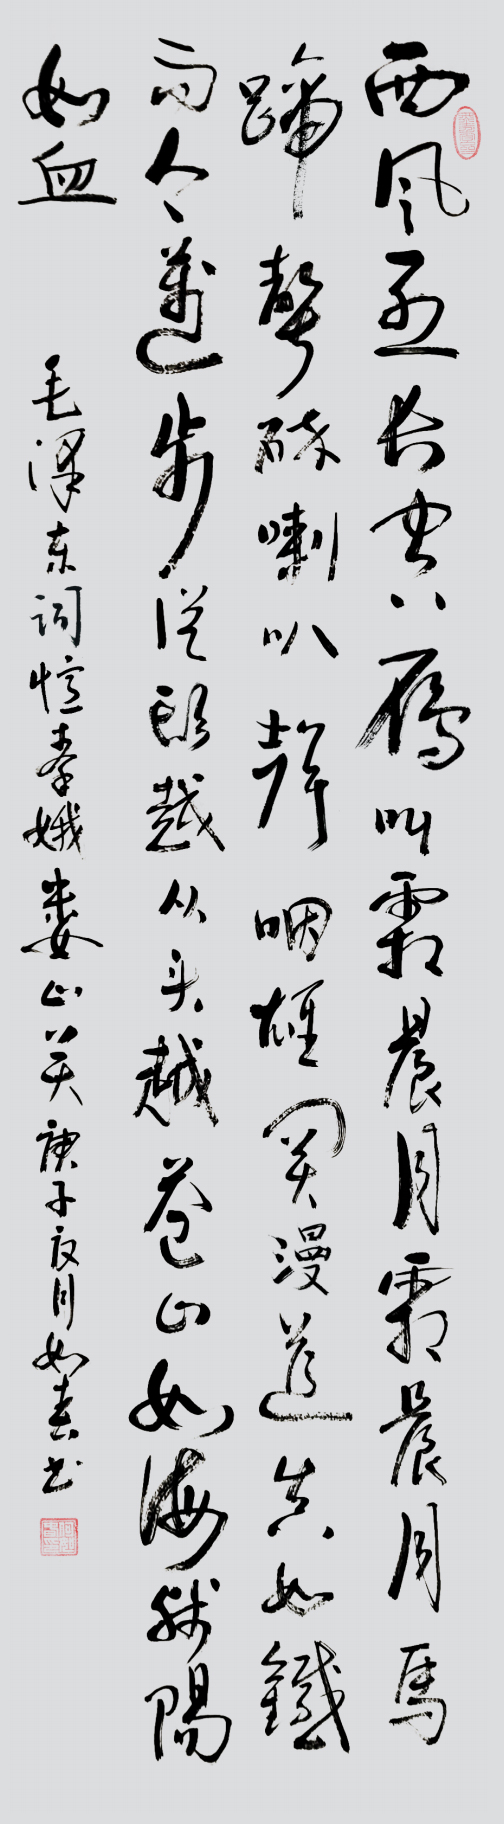 西风烈长空雁叫霜晨月霜晨月馬
蹄聲碎喇叭聲咽雄関漫道真如鐵
而今邁步從頭越从头越苍山如海残陽
如血
毛澤东词憶秦娥娄山关庚子夏月如春书